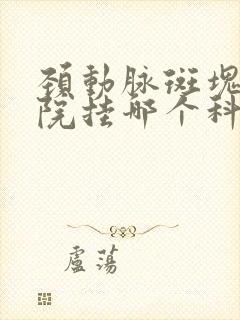 颈動脉斑塊
院挂哪个科
盧蕩